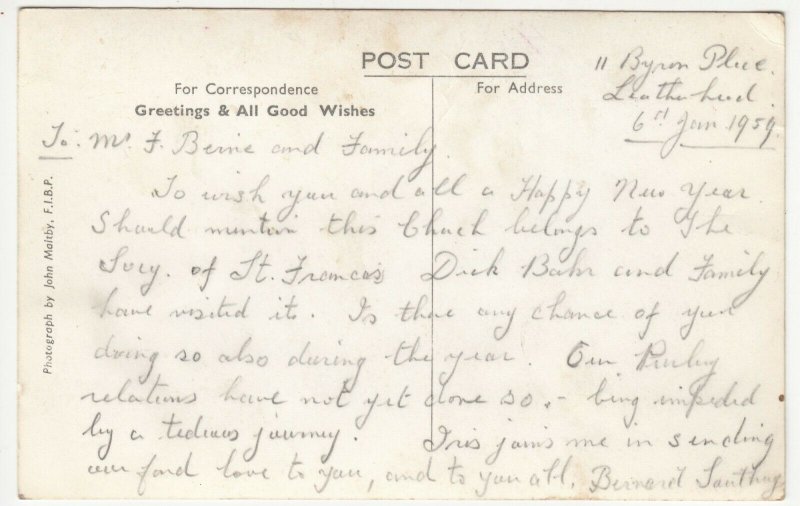 POST CARD
For Correspondence
For Address
Greetings & All Good Wishes
11 Byron Place.
Leatherhead.
6th Jan. 1959.
To: Mr F. and Family.
To wish you and all a Happy New Year.
Should mention this Church belongs to The
Socy. of St. Frances Dick and Family
have visited it. Is there any chance of your
doing so also during the year. Our Purley
relations have not yet done so, - being impeded
by a tedious journey. Iris joins me in sending
our fond love to you, and to you all, Bernard
Photograph by John Maltby, F.I.B.P.